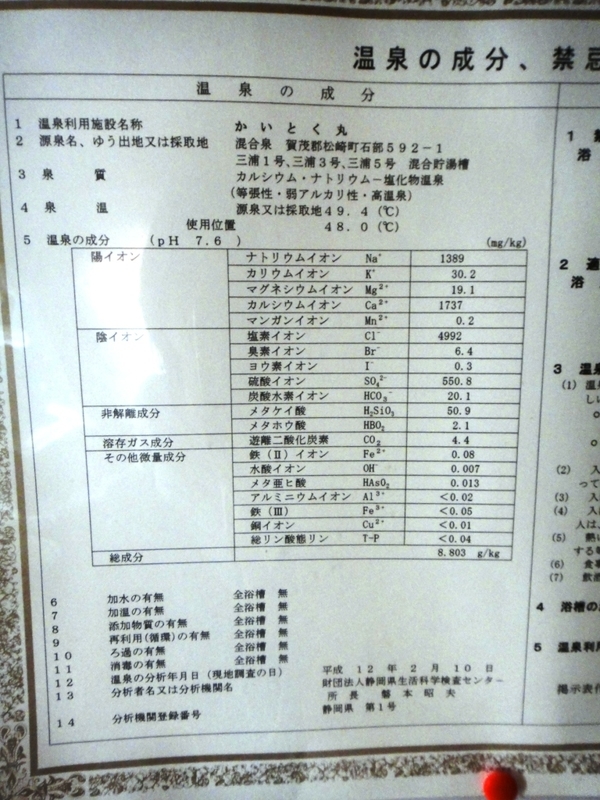 温泉の成分、禁忌
温泉の成分
1 温泉利用施設名称 かいとく丸
2 源泉名、ゆう出地又は採取地 混合泉 賀茂郡松崎町石部592-1
三浦1号、三浦3号、三浦5号 混合貯湯槽
3 泉質 カルシウム・ナトリウム－塩化物温泉
(等張性・弱アルカリ性・高温泉)
4 泉温 源泉又は採取地49.4(℃)
使用位置 48.0(℃)
5 温泉の成分 (pH 7.6) (mg/kg)
陽イオン ナトリウムイオン Na⁺ 1389
カリウムイオン K⁺ 30.2
マグネシウムイオン Mg²⁺ 19.1
カルシウムイオン Ca²⁺ 1737
マンガンイオン Mn²⁺ 0.2
陰イオン 塩素イオン Cl⁻ 4992
臭素イオン Br⁻ 6.4
ヨウ素イオン I⁻ 0.3
硫酸イオン SO₄²⁻ 550.8
炭酸水素イオン HCO₃⁻ 20.1
非解離成分 メタケイ酸 H₂SiO₃ 50.9
メタホウ酸 HBO₂ 2.1
溶存ガス成分 遊離二酸化炭素 CO₂ 4.4
その他微量成分 鉄(Ⅱ)イオン Fe²⁺ 0.08
水酸イオン OH⁻ 0.007
メタ亜ヒ酸 HAsO₂ 0.013
アルミニウムイオン Al³⁺ <0.02
鉄(Ⅲ) Fe³⁺ <0.05
銅イオン Cu²⁺ <0.01
総リン酸態リン T-P <0.04
総成分 8.803 g/kg
6 加水の有無 全浴槽 無
7 加温の有無 全浴槽 無
8 添加物質の有無 全浴槽 無
9 再利用(循環)の有無 全浴槽 無
10 ろ過の有無 全浴槽 無
11 消毒の有無 全浴槽 無
12 温泉の分析年月日(現地調査の日) 平成12年2月10日
13 分析者名又は分析機関名 財団法人静岡県生活科学検査センター
所長 磐本昭夫
14 分析機関登録番号 静岡県 第1号
1
浴
2 適
浴
3 温泉
(1) 温
しい
(2) 入
って
(3) 入
(4) 入
人は、
(5) 熱い
する
(6) 食事
(7) 飲
4 浴槽の
5 温泉利用
掲示